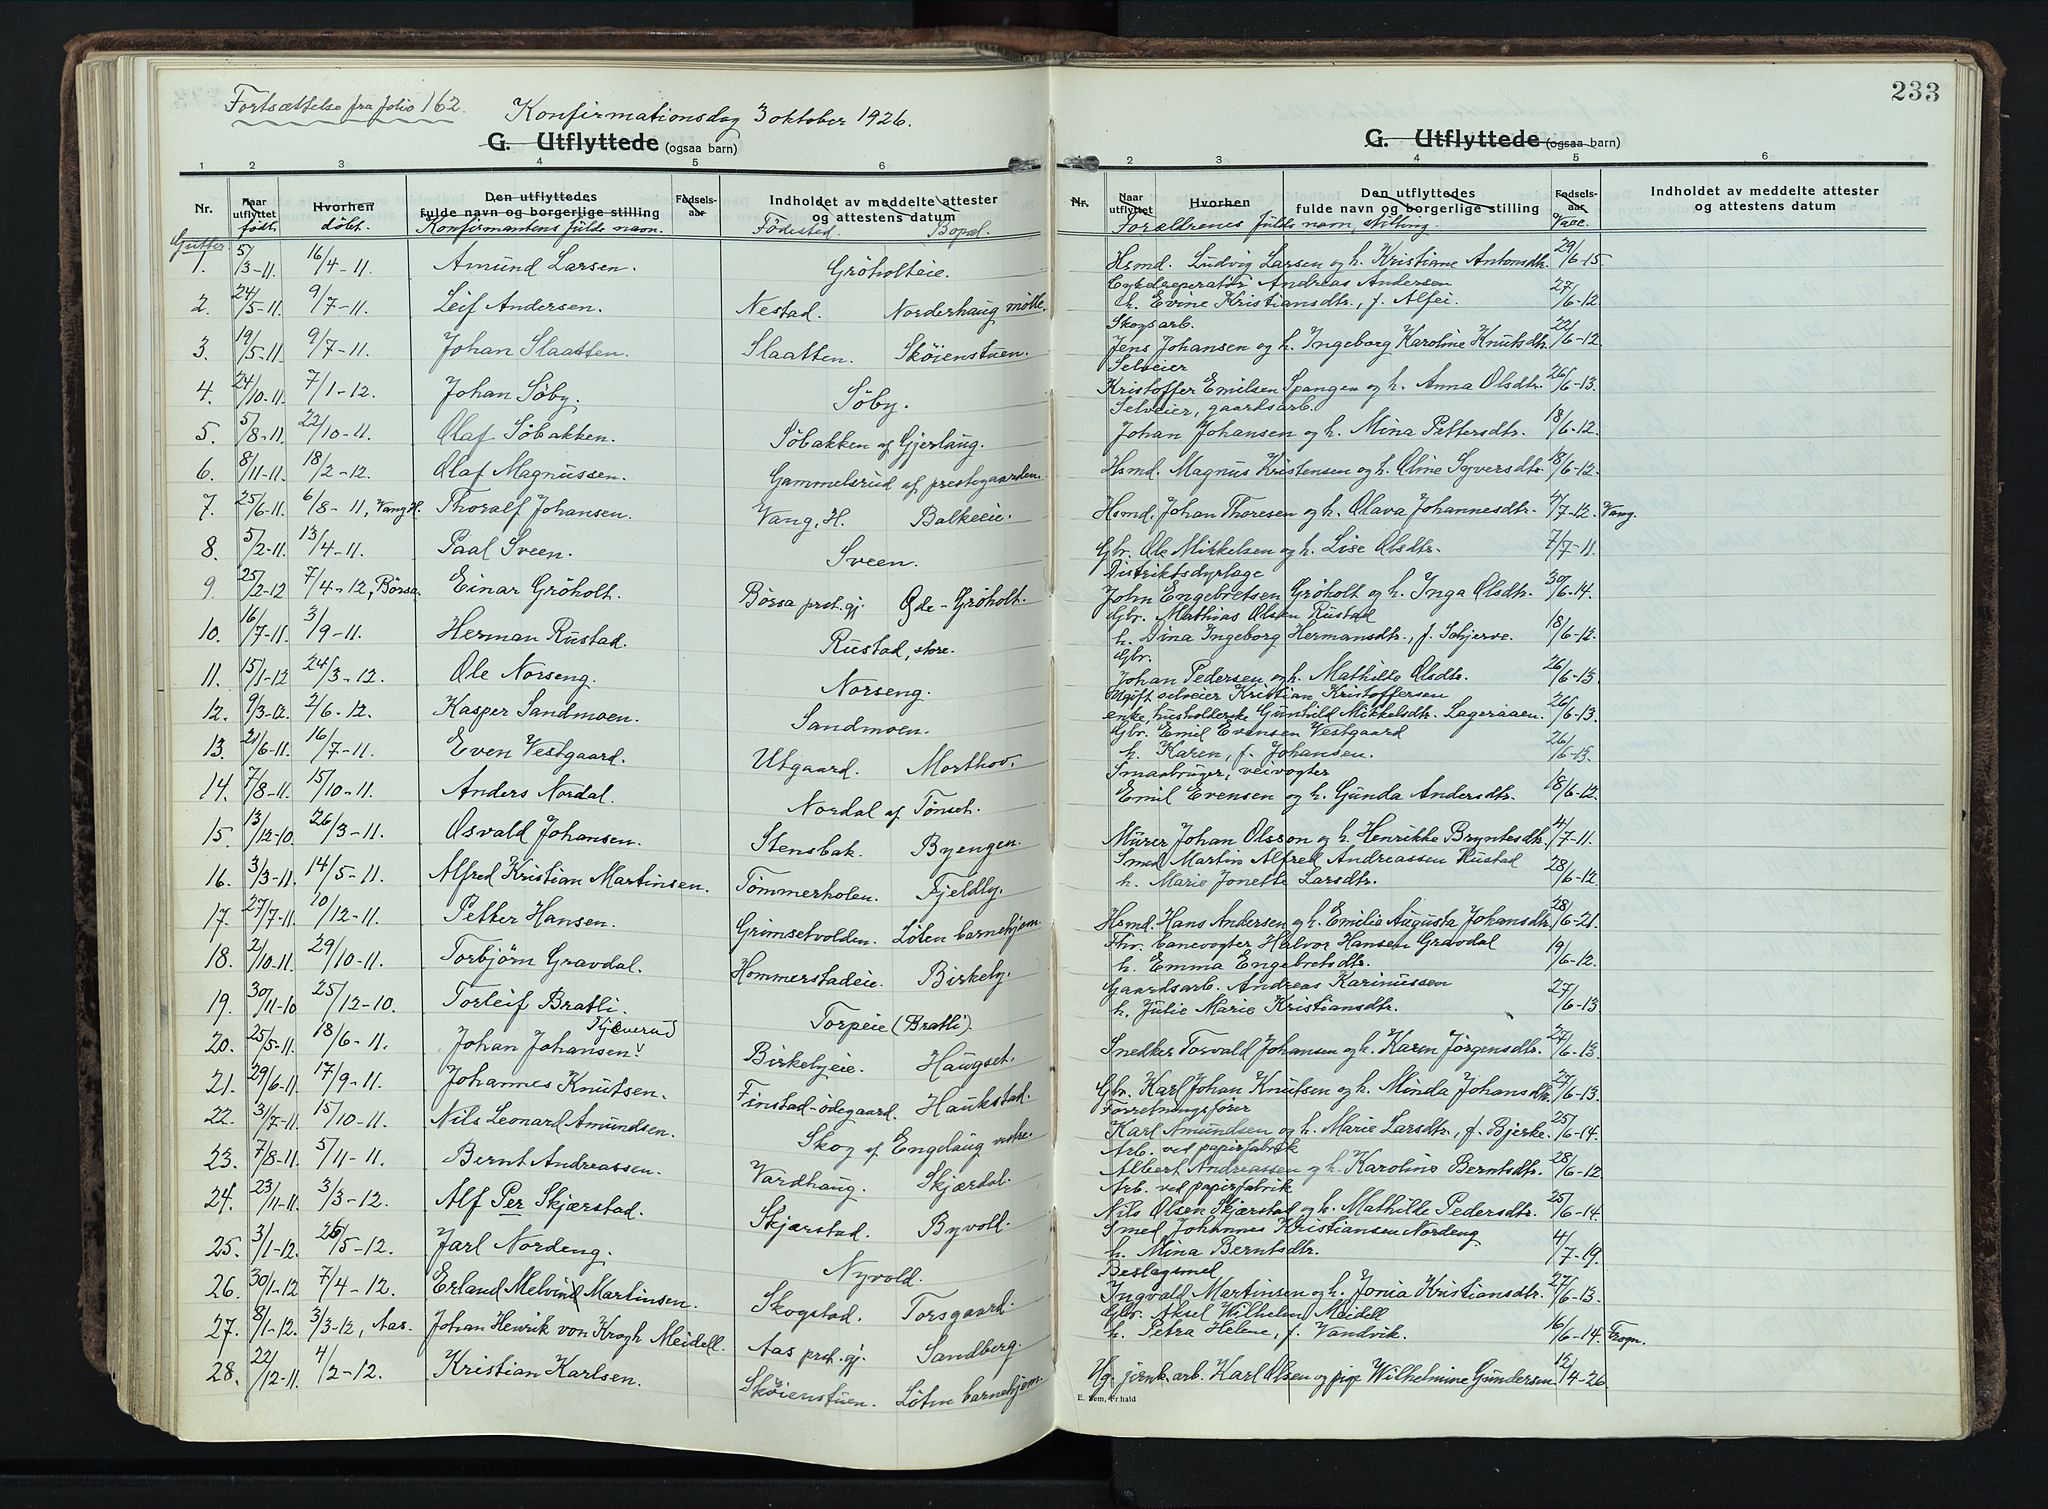 Fortsættelse fra folio 162.
Konfirmationsdag 3 oktober 1926.
G. Utflyttede (ogsaa barn)
1 2 3 4 5 6
Nr. Naar utflyttet Hvorhen Den utflyttedes fulde navn og borgerlige stilling Fødsels-aar Indholdet av meddelte attester og attestens datum
Gutter. født. døbt. Konfirmantens fulde navn. Fødested. Bopæl.
1. 5/3-11. 16/4-11. Amund Larsen. Gröholteie.
2. 24/5-11. 9/7-11. Leif Andersen. Nestad. Norderhaug mölle.
3. 19/5-11. 9/7-11. Johan Slaatten. Slaatten. Skøienstuen.
4. 24/10-11. 7/1-12. Johan Söby. Söby.
5. 5/8-11. 22/10-11. Olaf Söbakken. Söbakken af Gjerlaug.
6. 8/11-11. 18/2-12. Olaf Magnussen. Gammelsrud af prestegaarden.
7. 25/6-11. 6/8-11, Vang H. Thoralf Johansen. Vang, H. Balkeeie.
8. 5/2-11. 13/4-11. Paal Sveen. Sveen.
9. 25/2-12 7/4-12, Börsa. Einar Gröholt. Börsa prst.gj. Øde-Gröholt.
10. 16/7-11. 3/9-11. Herman Rustad. Rustad, store.
11. 15/1-12 24/3-12. Ole Norseng. Norseng.
12. 9/3-12. 2/6-12. Kasper Sandmoen. Sandmoen.
13. 21/6-11. 16/7-11. Even Vestgaard. Utgaard. Morthov.
14. 7/8-11. 15/10-11. Anders Nordal. Nordal af Tönset.
15. 13/12-10. 26/3-11. Osvald Johansen. Stensbak. Byengen.
16. 3/3-11. 14/5-11. Alfred Kristian Martinsen. Tömmerholen. Fjeldly.
17. 27/7-11. 10/12-11. Petter Hansen. Grimsetvolden. Löten barnehjem.
18. 2/10-11. 29/10-11. Torbjörn Gravdal. Hommerstadeie. Birkely.
19. 30/11-10 25/12-10. Torleif Bratli. Torpeie (Bratli).
20. 25/5-11. 18/6-11. Johan Johansen. Tyeverud Birkebyeie. Haugset.
21. 29/6-11. 17/9-11. Johannes Knutsen. Finstad-ödegaard. Haukstad.
22. 31/7-11. 15/10-11. Nils Leonard Amundsen. Skog af Engelaug vestre.
23. 7/8-11. 5/11-11. Bernt Andreassen. Vardhaug. Skjærdal.
24. 23/11-11. 3/3-12. Alf Per Skjærstad. Skjærstad. Byvoll.
25. 3/1-12. 26/5-12. Jarl Nordeng. Nyvold.
26. 30/1-12 7/4-12. Erland Melvind Martinsen. Skogstad. Torsgaard.
27. 8/1-12. 3/3-12, Aas. Johan Henrik von Krogh Meidell. Aas prst.gj. Sandberg.
28. 22/12-11. 4/2-12. Kristian Karlsen. Skøienstuen. Löten barnehjem.
233
G. Utflyttede (ogsaa barn)
1 2 3 4 5 6
Nr. Naar utflyttet Hvorhen Den utflyttedes fulde navn og borgerlige stilling Fødsels-aar Indholdet av meddelte attester og attestens datum
Forældrenes fulde navn, stilling. Vacc.
Hsmd. Ludvig Larsen og h. Kristiane Antonsdtr. 29/6-15.
Cykelreperatör Andreas Andersen
h. Evine Kristiansdtr., f. Alfei. 27/6-12
Skogsarb.
Jens Johansen og h. Ingeborg Karoline Knutsdtr. 22/6-12.
Selveier
Kristoffer Emilsen Spangen og h. Anna Olsdtr. 26/6-13.
Selveier, gaardsarb.
Johan Johansen og h. Mina Pettersdtr. 18/6-12.
Hsmd. Magnus Kristensen og h. Oline Syversdtr. 18/6-12.
Hsmd. Johan Thoresen og h. Olava Johannesdtr. 4/7-12. Vang.
Gbr. Ole Mikkelsen og h. Lise Olsdtr. 7/7-11.
Distriktsdyrlæge
John Engebretsen Gröholt og h. Inga Olsdtr. 30/6-14.
Gbr. Mathias Olsen Rustad
h. Dina Ingeborg Hermansdtr., f. Schjerve. 18/6-12.
Gbr.
Johan Pedersen og h. Mathilde Olsdtr. 26/6-13.
Ugift selveier Kristian Kristoffersen
enke, husholderske Gunhild Mikkelsdtr. Lageraaen. 26/6-13.
Gbr. Emil Evensen Vestgaard
h. Karen, f. Johansen. 26/6-13.
Smaabruger, veivogter
Emil Evensen og h. Gunda Andersdtr. 18/6-12.
Murer Johan Olsson og h. Henrikke Bryntesdtr. 4/7-11.
Smed Martin Alfred Andreassen Rustad
h. Marie Jonette Larsdtr. 28/6-12.
Hsmd. Hans Andersen og h. Emilie Augusta Johansdtr. 28/6-21.
Fhv. banevogter Halvor Hansen Gravdal
h. Emma Engebretsdtr. 19/6-12.
Gaardsarb. Andreas Karinussen
h. Julie Marie Kristiansdtr. 27/6-13
Snedker Torvald Johansen og h. Karen Jörgensdtr. 27/6-13.
Gbr. Karl Johan Knutsen og h. Minda Johansdtr. 27/6-13.
Forretningsförer
Karl Amundsen og h. Marie Larsdtr., f. Bjerke. 25/6-14.
Arb. ved papirfabrik
Albert Andreassen og h. Karoline Berntsdtr. 28/6-12
Arb. ved papirfabrik
Nils Olsen Skjærstad og h. Mathilde Pedersdtr. 25/6-14.
Smed Johannes Kristiansen Nordeng
h. Mina Berntsdtr. 4/7-19.
Beslagsmed
Ingvald Martinsen og h. Jonia Kristiansdtr. 27/6-13.
Gbr. Aksel Wilhelm Meidell
h. Petra Helene, f. Vandvik. 16/6-14. Frogn.
Ug. jernb.arb. Karl Olsen og pige Wilhelmine Gundersen 12/4-26
E. Sem, Fr.hald